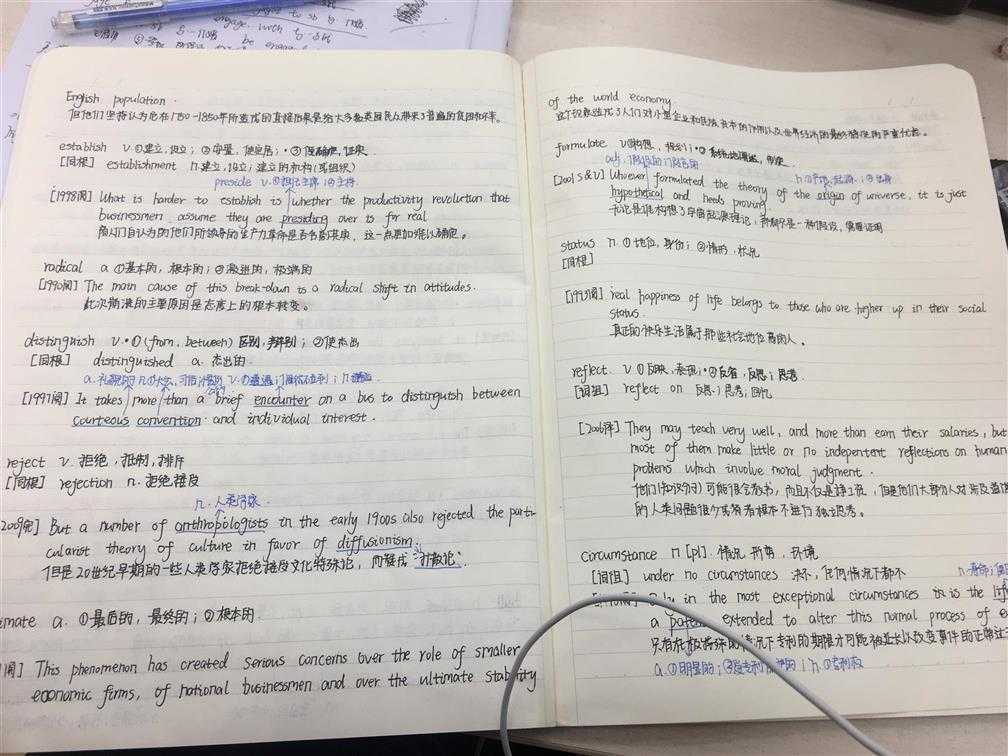 engage with
English population.
但他们坚持认为它在1750-1850年所造成的直接后果是给大多数英国民众带来了普遍的贫困和不幸。
establish v.①建立,设立;②安置,使定居;·③
[同根] establishment n.建立,设立;建立的机构(或组织)
preside v.①担任主席 ②主持
[1998阅] What is harder to establish is whether the productivity revolution that
businessmen assume they are presiding over is for real
商人们自认为的他们所领导的生产力革命是否名副其实,这一点更加难以确定。
radical a ①基本的,根本的;②激进的,极端的
[1990阅] The main cause of this break-down is a radical shift in attitudes.
此次崩溃的主要原因是态度上的根本转变。
distinguish v.·①(from, between)区别,辨别;②使杰出
[同根] distinguished a. 杰出的
[1997阅] It takes more than a brief encounter on a bus to distinguish between
courteous convention and individual interest.
reject v. 拒绝,抵制,排斥
[同根] rejection n. 拒绝接受
n. 人类学家
2009完] But a number of anthropologists in the early 1900s also rejected the parti-
cularist theory of culture in favor of diffusionism.
但是20世纪早期的一些人类学家拒绝接受文化特殊论,而赞成"扩散论"
imate a. ①最后的,最终的;②根本的
阅] This phenomenon has created serious concerns over the role of smaller
economic firms, of national businessmen and over the ultimate stability
of the world economy
这个现象造成了人们对小型企业和民族资本的作用以及世界经济的最终稳定的严重忧虑。
formulate v.①构想,规划;·②系统地阐述
adj. 假设的
n.①
[2001 S&V] Whoever formulated the theory of the origin of universe, it is just
hypothetical and needs proving.
无论是谁构想了宇宙起源理论,那都只是一种假设,需要证明
status n. ①地位,身份;②情形,状况
[同根]
[1993阅] real happiness of life belongs to those who are higher up in their social
status.
真正的快乐生活属于那些社会地位高的人。
reflect v ①反映,表现;·②反省,反思;思考
[词组] reflect on 反思;思考;回忆
[2006译] They may teach very well, and more than earn their salaries, but
most of them make little or no indepentent reflections on human
problems which involve moral judgment.
他们(知识分子)可能很会教书,而且不仅是挣工资,但是他们大部分人对涉及道德
的人类问题很少或者根本不进行独立思考。
circumstance n [pl]. 情况,形势,环境
[词组] under no circumstances 决不,任何情况下都不
in the most exceptional circumstances is the life
a patent extended to alter this normal process of e
只有在极特殊的情况下专利的期限才可能被延长以改变事件的正常
a.①明显的;②受专利保护的;n.①专利权